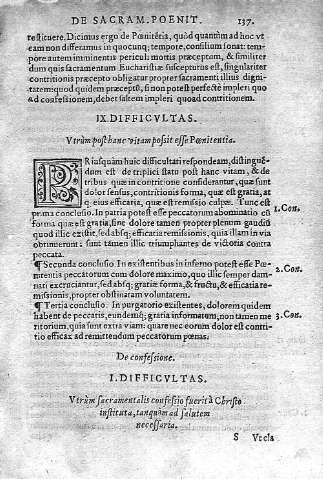 DE SACRAM. POENIT. 137.
restituere. Dicimus ergo de Pœnitẽtia, quòd quantum ad hoc vt
eam non differamus in quocunq; tempore, consilium sonat: tem-
pore autem imminentis periculi mortis præceptum, & similiter
dum quis sacramentum Eucharistiæ suscepturus est, singulariter
contritionis præcepto obligatur propter sacramenti illius digni-
tatem: quod quidem præceptũ, si non potest perfectè impleri quo
ad confessionem, debet saltem impleri quoad contritionem.
IX. DIFFICVLTAS.
Vtrùm post hanc vitam possit esse Pœnitentia.
PRiusquàm huic difficultati respondeam, distinguẽ-
dum est de triplici statu post hanc vitam, & de
tribus quæ in contritione considerantur, quæ sunt
dolor sensus, contritionis forma, quæ est gratia, at
q; eius efficacia, quæ est remissio culpæ. Tunc est
prima conclusio. In patria potest esse peccatorum abominatio cũ
1. Con.
forma quæ est gratia, sine dolore tamen propter plenum gaudiũ
quod illic existit, sed absq; efficacia remissionis, quia illam in via
obtinuerunt: sunt tamen illic triumphantes de victoria contra
peccata.
¶ Secunda conclusio. In existentibus in inferno potest esse Pœ-
nitentia peccatorum cum dolore maximo, quo illic semper dam-
2. Con.
nati excruciantur, sed absq; gratiæ forma, & fructu, & efficacia re-
missionis, propter obstinatam voluntatem.
¶ Tertia conclusio. In purgatorio existentes, dolorem quidem
habent de peccatis, eundemq; gratia informatum, non tamen me
3. Con.
ritorium, quia sunt extra viam: quare nec eorum dolor est contri-
tio efficax ad remittendum peccatorum pœnas.
De confessione.
I. DIFFICVLTAS.
Vtrùm sacramentalis confessio fuerit à Christo
instituta, tanquàm ad salutem
necessaria.
S Vecla